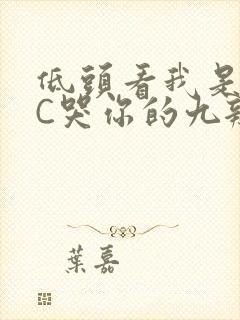 低頭看我是
C哭你的九
葉嘉